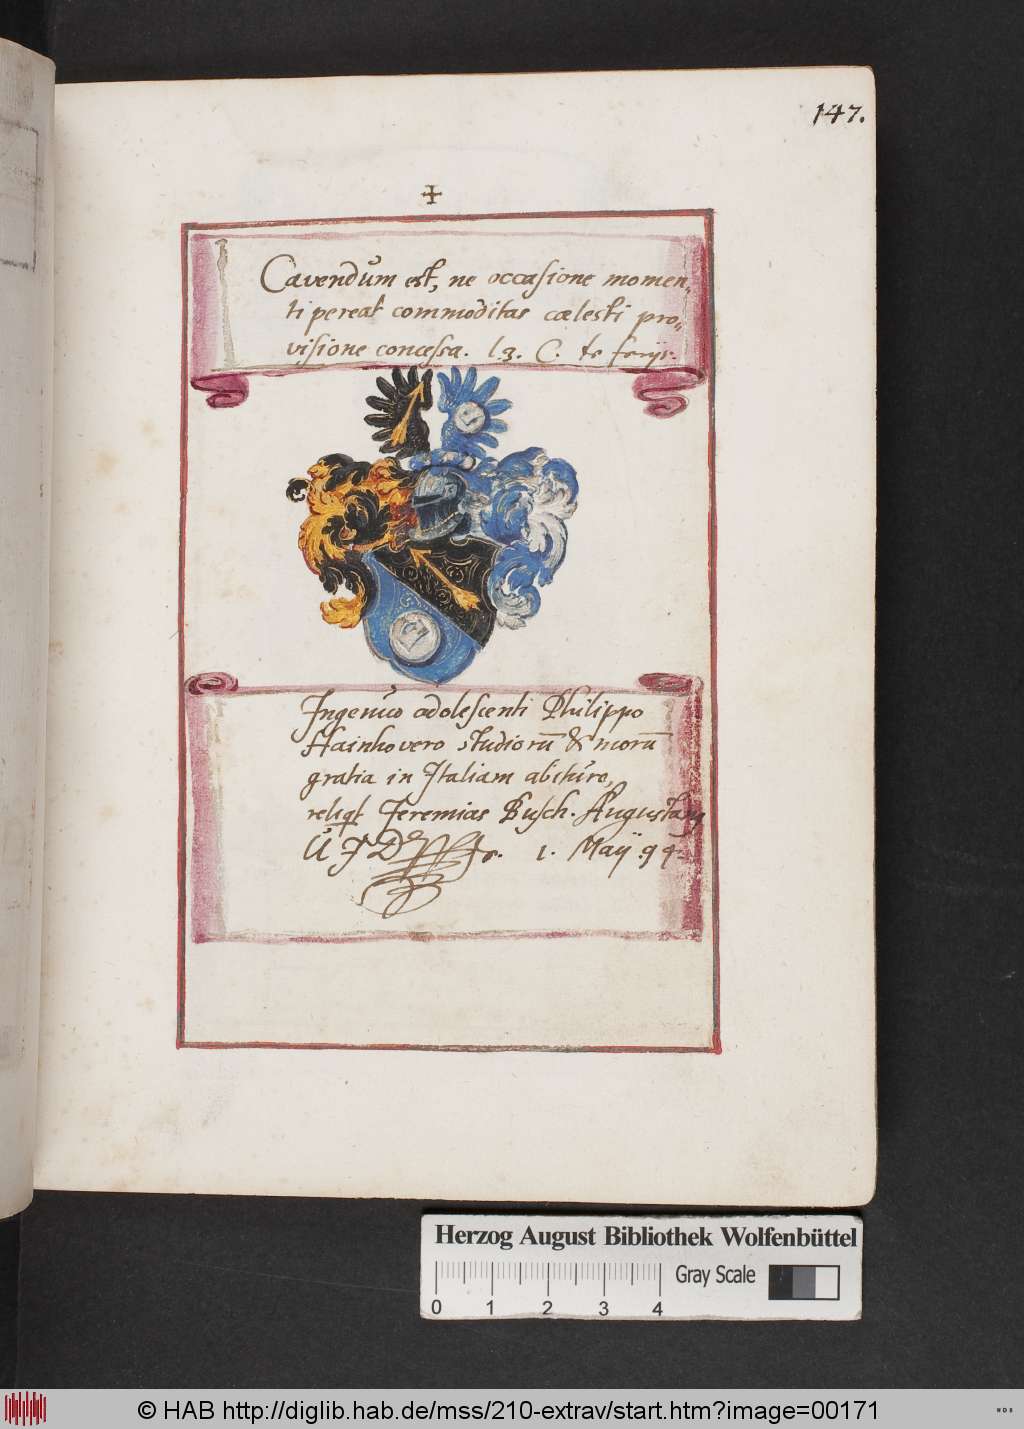 147.
Cavendum est, ne occasione momen„
ti pereat commoditas cælesti pro„
visione concessa. l. 3. C. de ferijs.
Ingenuo adolescenti Philippo
Hainhovero studiorū & morū
gratia in Italiam abituro,
reliqt Jeremias Busch. Augustanꝰ
U J D 1. Maij. 94.
Herzog August Bibliothek Wolfenbüttel
Gray Scale
0 1 2 3 4
© HAB http://diglib.hab.de/mss/210-extrav/start.htm?image=00171